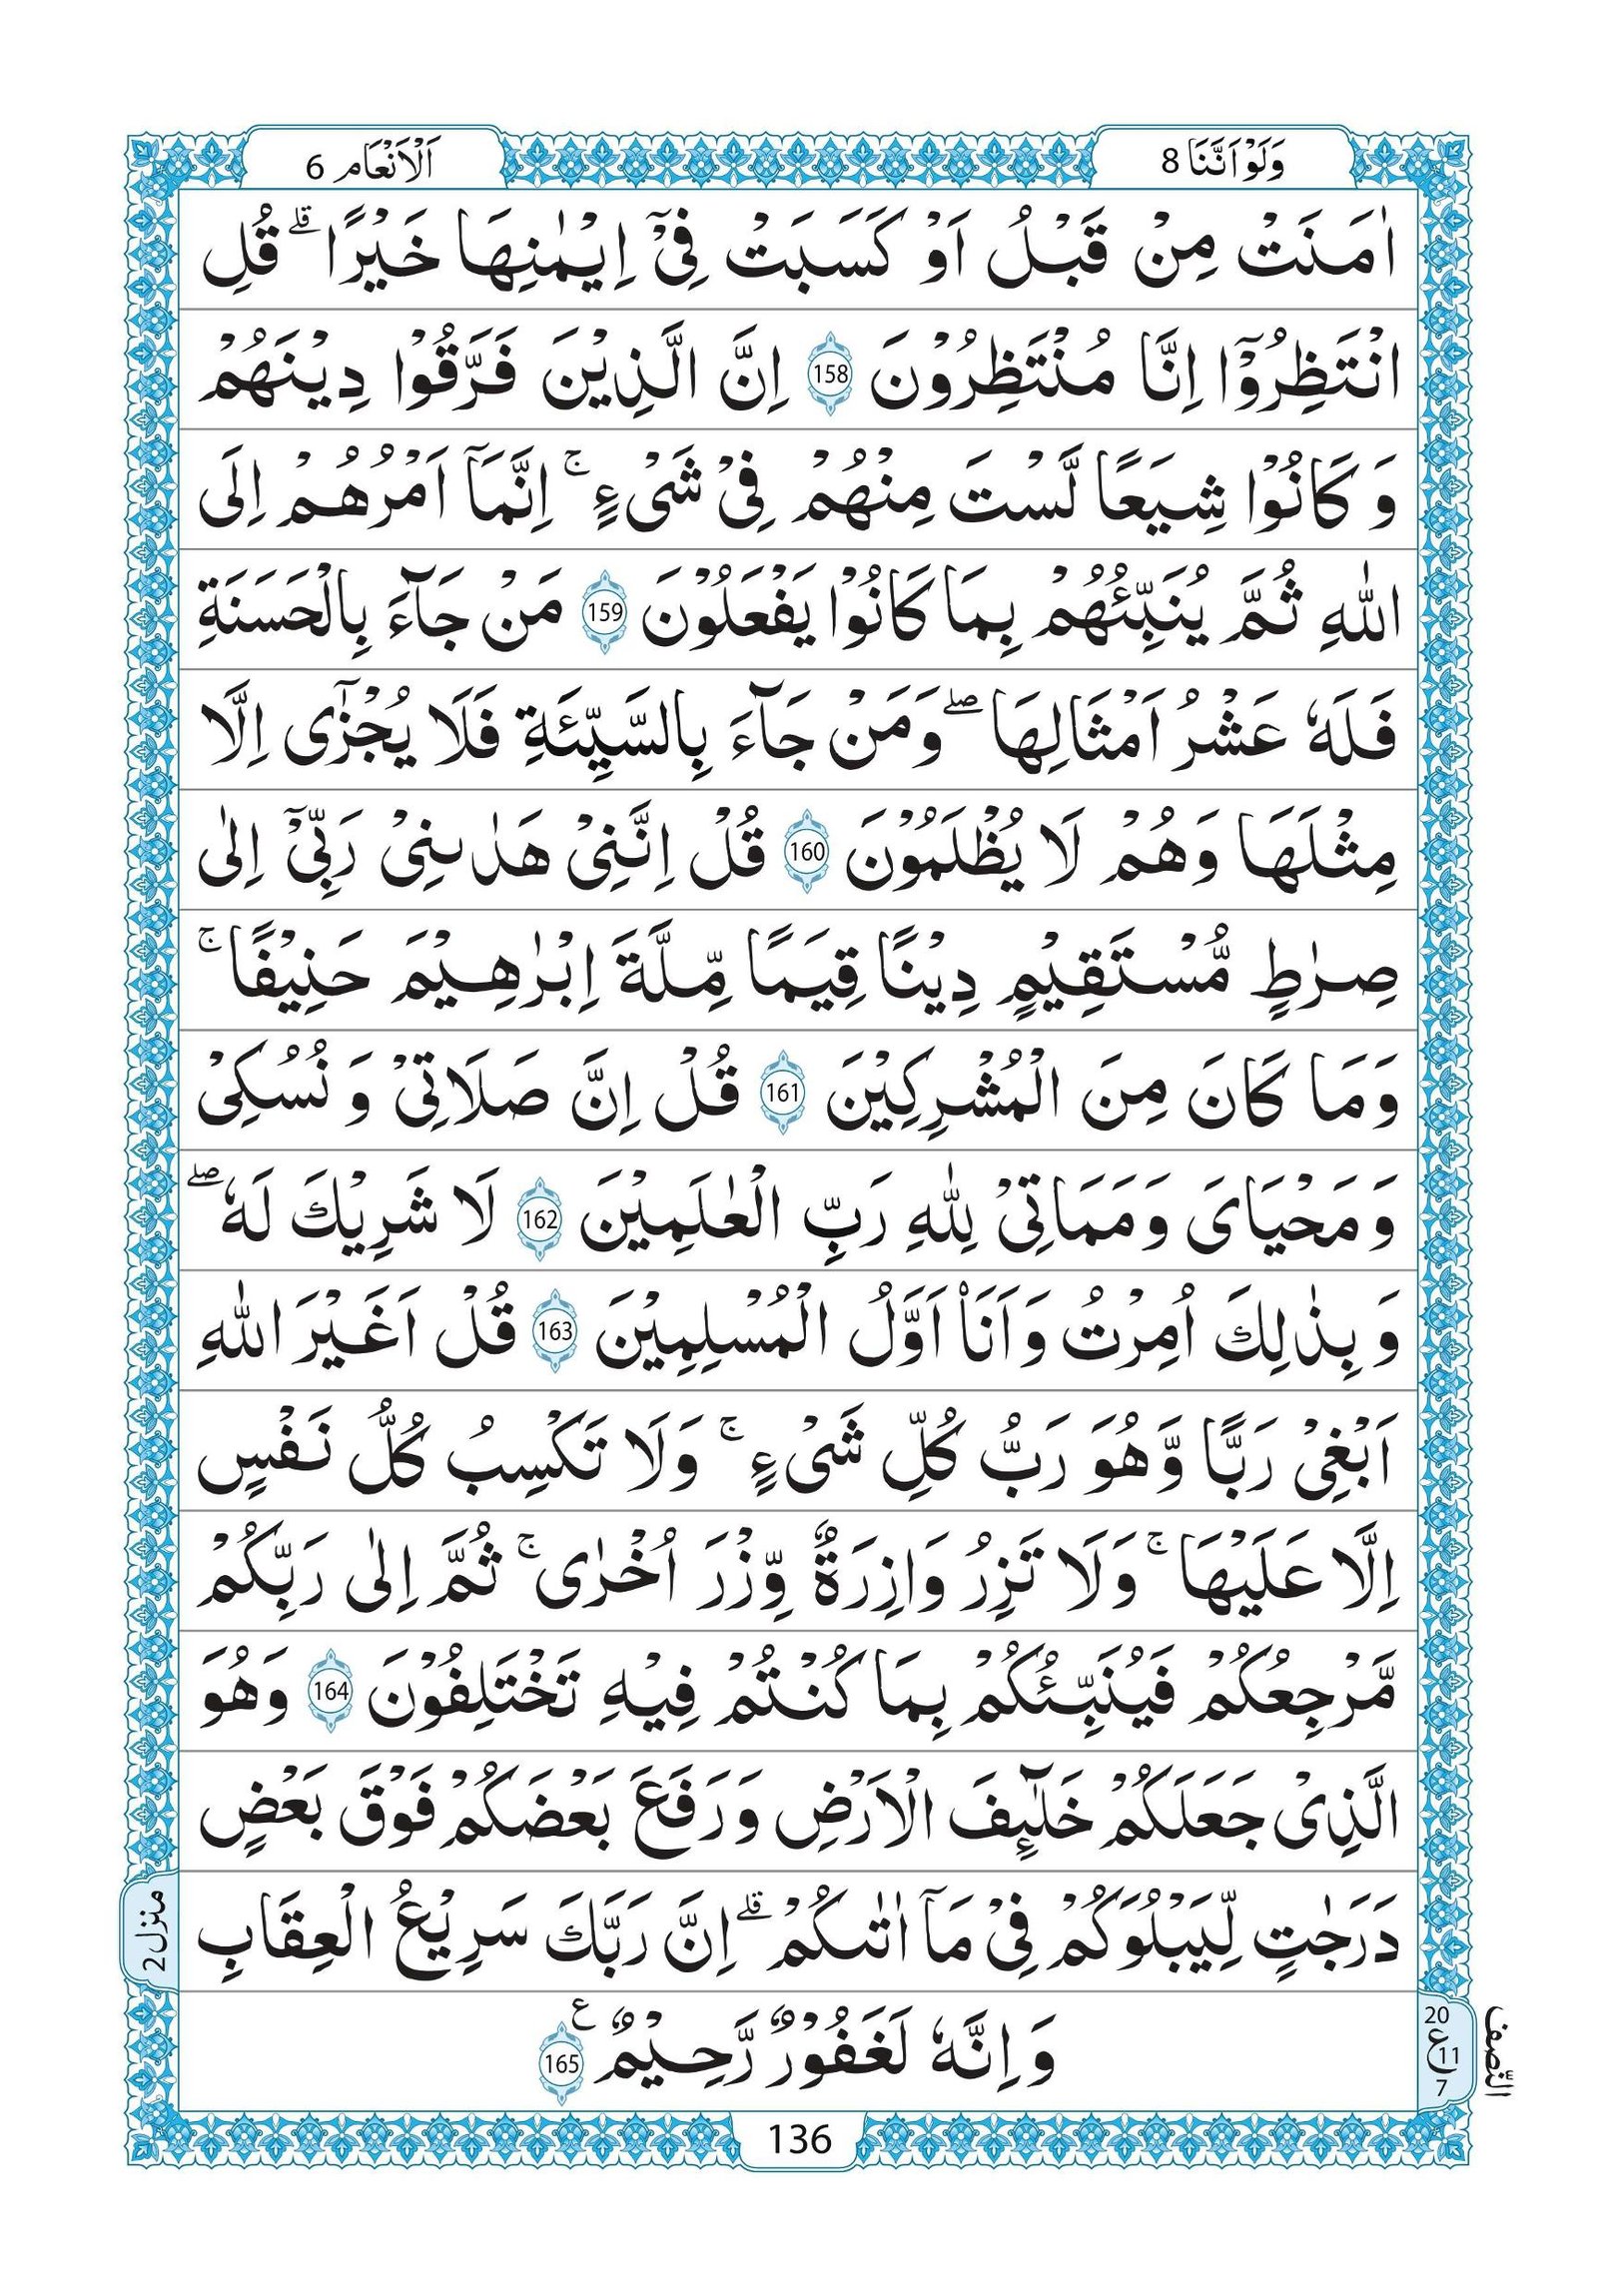 وَلَوْ اَنَّنَا 8
اَلْاَنْعَام 6
اٰمَنَتْ مِنْ قَبْلُ اَوْ كَسَبَتْ فِیْۤ اِیْمٰنِهَا خَیْرًا ؕۗ قُلِ
انْتَظِرُوْۤا اِنَّا مُنْتَظِرُوْنَ 158 اِنَّ الَّذِیْنَ فَرَّقُوْا دِیْنَهُمْ
وَ كَانُوْا شِیَعًا لَّسْتَ مِنْهُمْ فِیْ شَیْءٍ ۚ اِنَّمَاۤ اَمْرُهُمْ اِلَی
اللّٰهِ ثُمَّ یُنَبِّئُهُمْ بِمَا كَانُوْا یَفْعَلُوْنَ 159 مَنْ جَآءَ بِالْحَسَنَةِ
فَلَهٗ عَشْرُ اَمْثَالِهَا ۖ وَمَنْ جَآءَ بِالسَّیِّئَةِ فَلَا یُجْزٰۤی اِلَّا
مِثْلَهَا وَهُمْ لَا یُظْلَمُوْنَ 160 قُلْ اِنَّنِیْ هَدٰىنِیْ رَبِّیْۤ اِلٰی
صِرٰطٍ مُّسْتَقِیْمٍ دِیْنًا قِیَمًا مِّلَّةَ اِبْرٰهِیْمَ حَنِیْفًا ۚ
وَمَا كَانَ مِنَ الْمُشْرِكِیْنَ 161 قُلْ اِنَّ صَلَاتِیْ وَ نُسُكِیْ
وَ مَحْیَایَ وَ مَمَاتِیْ لِلّٰهِ رَبِّ الْعٰلَمِیْنَ 162 لَا شَرِیْكَ لَهٗ ۖ
وَ بِذٰلِكَ اُمِرْتُ وَ اَنَا۠ اَوَّلُ الْمُسْلِمِیْنَ 163 قُلْ اَغَیْرَ اللّٰهِ
اَبْغِیْ رَبًّا وَّهُوَ رَبُّ كُلِّ شَیْءٍ ۚ وَلَا تَكْسِبُ كُلُّ نَفْسٍ
اِلَّا عَلَیْهَا ۚ وَلَا تَزِرُ وَازِرَةٌ وِّزْرَ اُخْرٰی ۚ ثُمَّ اِلٰی رَبِّكُمْ
مَّرْجِعُكُمْ فَیُنَبِّئُكُمْ بِمَا كُنْتُمْ فِیْهِ تَخْتَلِفُوْنَ 164 وَهُوَ
الَّذِیْ جَعَلَكُمْ خَلٰٓئِفَ الْاَرْضِ وَ رَفَعَ بَعْضَكُمْ فَوْقَ بَعْضٍ
دَرَجٰتٍ لِّیَبْلُوَكُمْ فِیْ مَاۤ اٰتٰىكُمْ ۗ اِنَّ رَبَّكَ سَرِیْعُ الْعِقَابِ
وَ اِنَّهٗ لَغَفُوْرٌ رَّحِیْمٌ ع 165
منزل 2
20
ع 11
7
النّصف
136